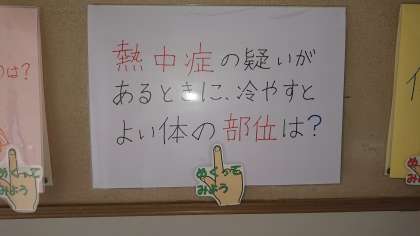 熱中症の疑いが
あるときに、冷やすと
よい体の部位は?
のは?
めくって
みよう
めくって
みよう
め
み